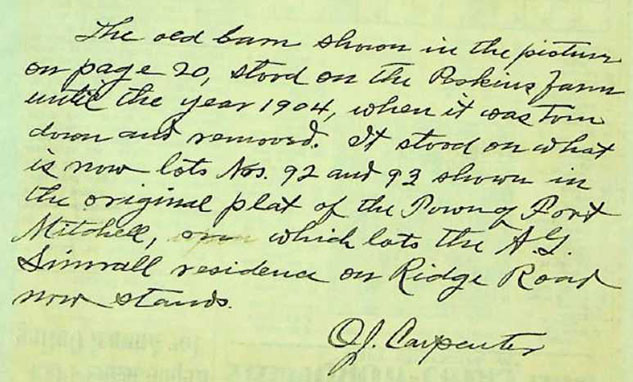 The old barn shown in the picture
on page 20, stood on the Perkins farm
until the year 1904, when it was torn
down and removed. It stood on what
is now lots Nos. 92 and 93 shown in
the original plat of the Town of Fort
Mitchell, on which lots the A.G.
Simrall residence on Ridge Road
now stands.
O.J. Carpenter